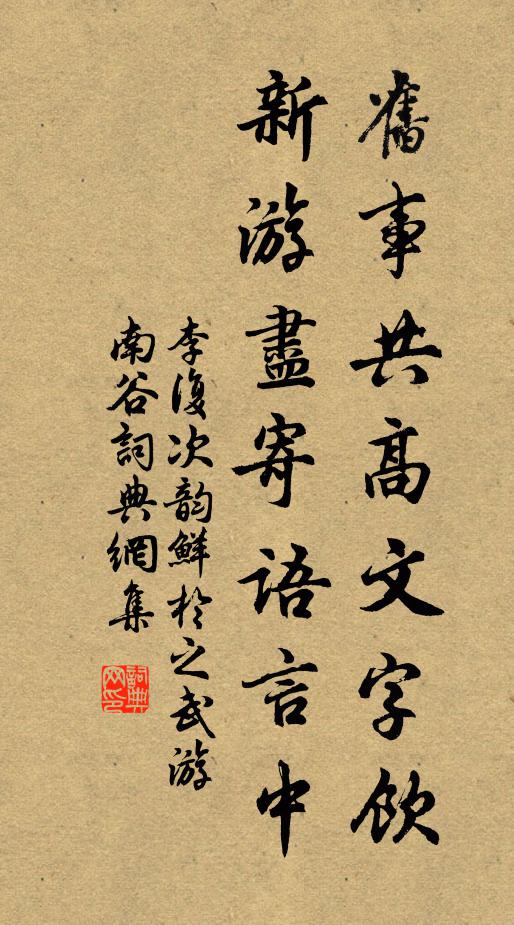 舊事共高文字飲
新游盡寄語言中
李復次韵鮮於之武游
南谷詞典網集
詞典網印